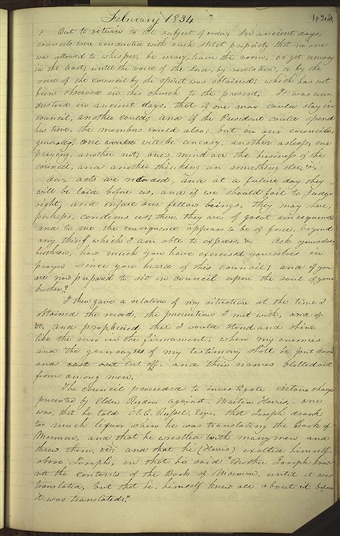 February 1834
But to return to the subject of order; In ancient days,
councils were conducted with such strict propriety that no one
was allowed to whisper, be weary, leave the room, or get uneasy
in the least, until the voice of the Lord by revelation, or by the
voice of the council by the Spirit was obtained: which has not
been observed in this church to the present. It was un-
derstood in ancient days, that if one man could stay in
council, another could, and if the President could spend
his time, the members could also; but in our councils
generally, one would will be uneasy, another asleep, one
praying, another not; one's mind on the business of the
council, and another thinking on something else; &c.
Our acts are recorded, and at a future day they
will be laid before us, and if we should fail to judge
right, and injure our fellow beings, they may there
perhaps, condemn us; there they are of great consequence,
and to me the consequence appears to be of force beyond
any thing which I am able to express &c Ask yourselves
brethren, how much you have exercised yourselves in
prayer since you heard of this council; and if you
are now prepared to sit in council upon the soul of your
brother?
I then gave a relation of my situation at the time I
obtained the record, the persecutions I met with, and of
&c, and prophecied that I would stand and shine
like the sun in the firmament; when my enemies
and the gainsayers of my testimony shall be put down
and cut off, and their names blotted out
from among men.
The council proceeded to investigate certain charges
presented by Elder Rigdon against Martin Harris; one
was, that he told Esq. Russel, Esqr. that Joseph drank
too much liquor when he was translating the Book of
Mormon, and that he wrestled with many men and
threw them, &c; and that he (Harris) exalted himself
above Joseph, in that he said "Brother Joseph knew
not the contents of the Book of Mormon, until it was
translated, but that he, himself knew all about it before
it was translated."